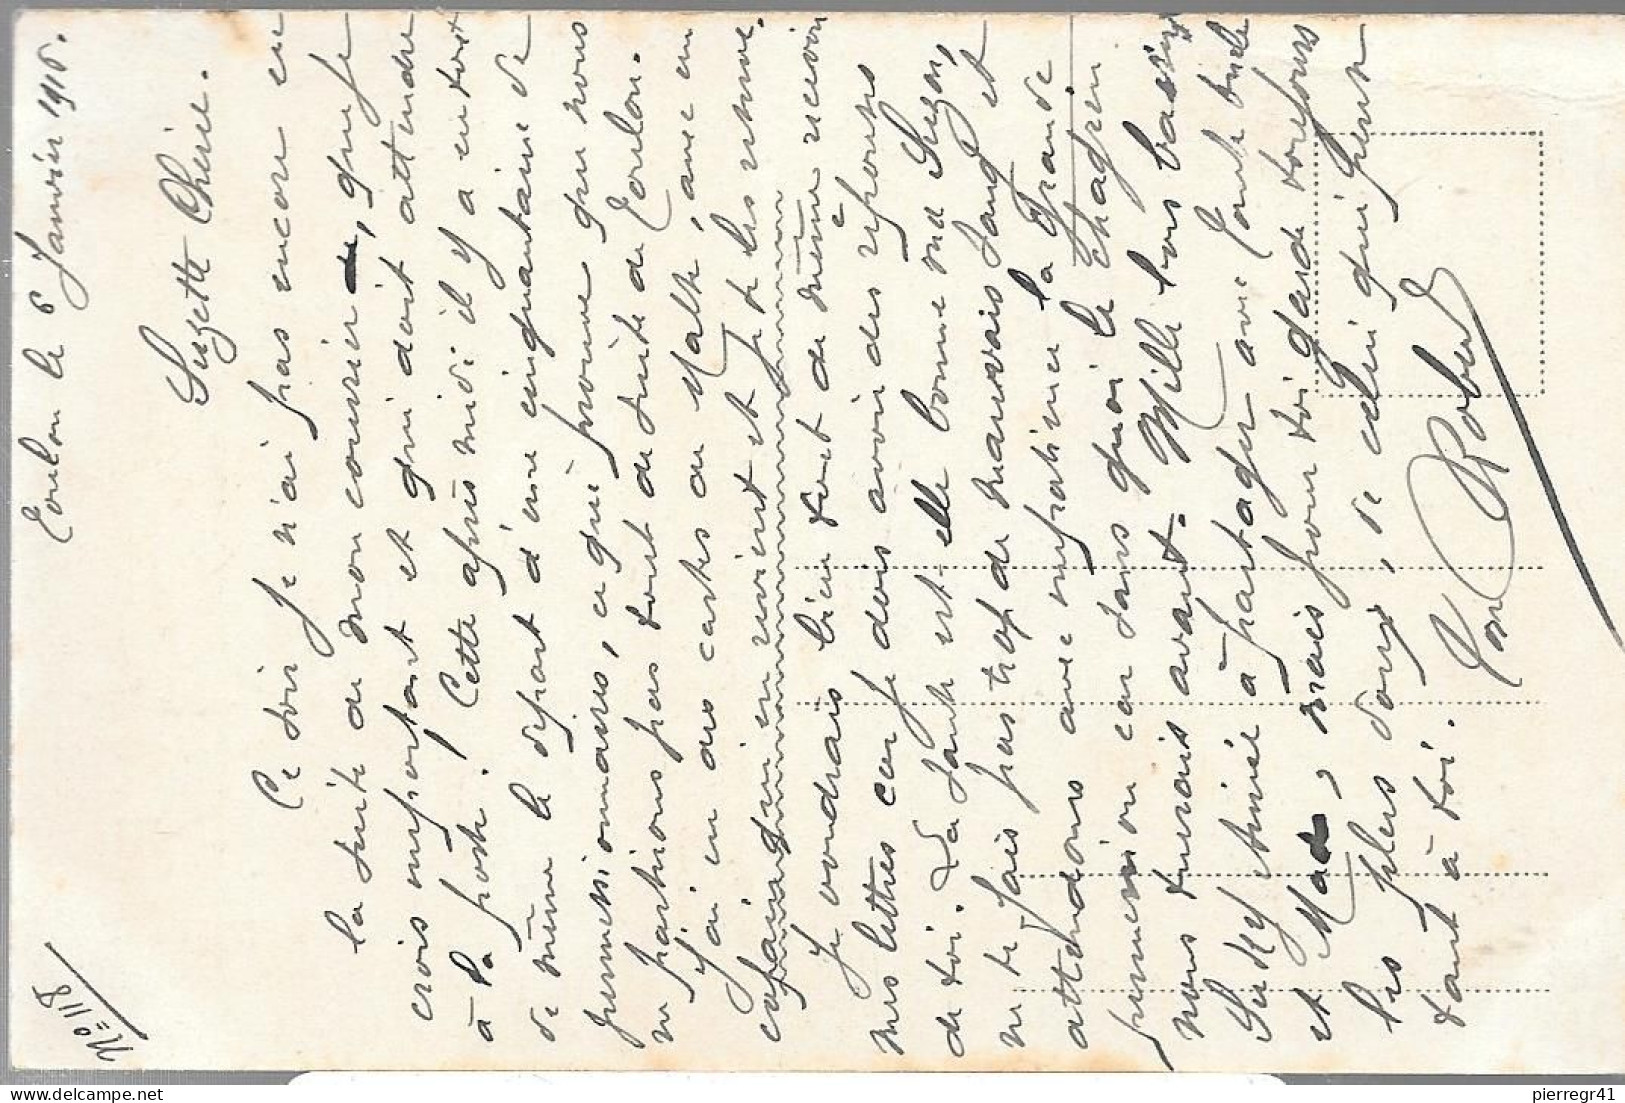 N° 118
Toulon le 6 Janvier 1916.
Suzette Chérie.
Ce soir je n'ai pas encore eu
la suite de mon courrier, que je
crois important et qui doit attendre
à la poste ! Cette après midi il y a eu tout
de même le départ d'une cinquantaine de
permissionnaires, ce qui prouve que nous
ne partions pas tout de suite de Toulon.
J'ai eu des cartes de Malte, avec un
qui en revient et je les retrouve.
Je voudrais bien tout de même recevoir
mes lettres car je dois avoir des réponses
de toi. La santé est-elle bonne ma Suzon,
ne te fais pas trop de mauvais sang et
attendons avec impatience la grande
permission car sans quoi le chagrin
nous tuerais avant. Mille bons baisers
Suzy aimée à partager avec Tante
et Mad, mais pour toi garde toujours
les plus doux, de celui qui pense
tant à toi.
Ton Robert
pierregr41